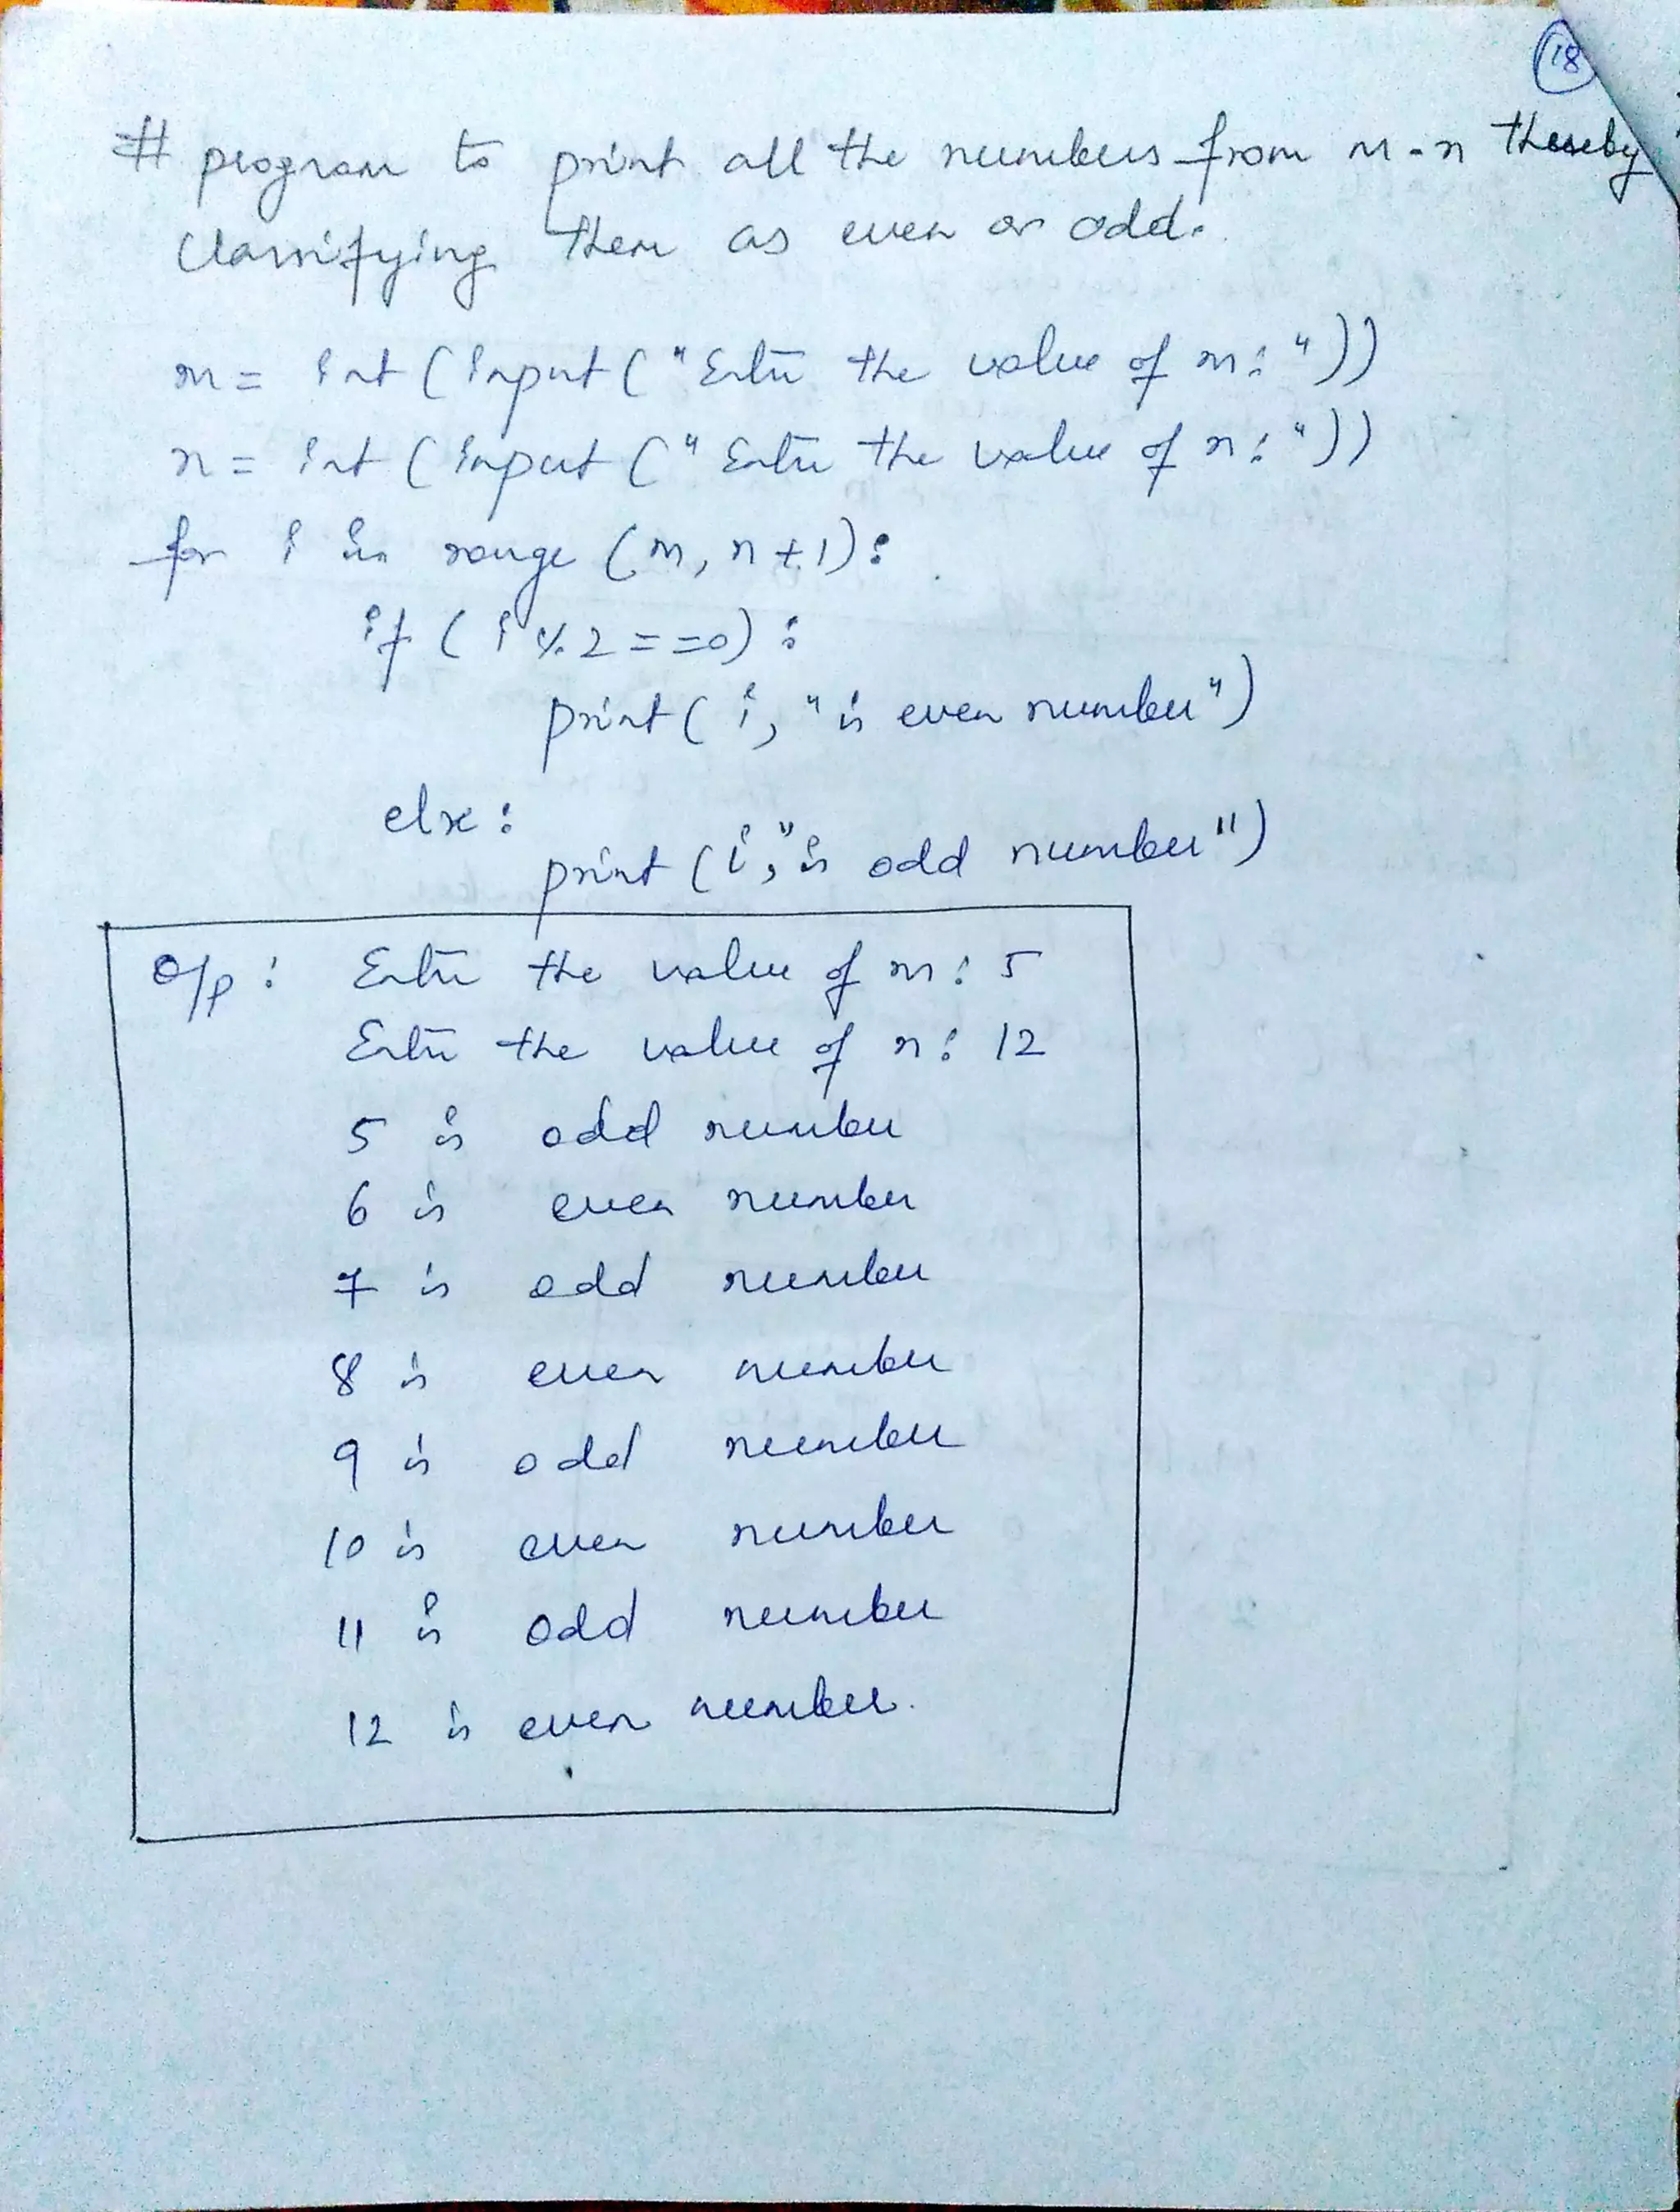 18
# program to print all the numbers from m-n thereby
classifying them as even or odd.
m = int (input ("Enter the value of m: "))
n = int (input (" Enter the value of n: "))
for i in range (m, n+1):
if ( i % 2 == 0) :
print ( i, " is even number")
else :
print (i, "is odd number")
O/p : Enter the value of m: 5
Enter the value of n: 12
5 is odd number
6 is even number
7 is odd number
8 is even number
9 is odd number
10 is even number
11 is odd number
12 is even number.